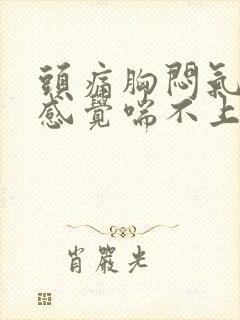 頭痛胸悶氣
感覺喘不上
肖嚴光